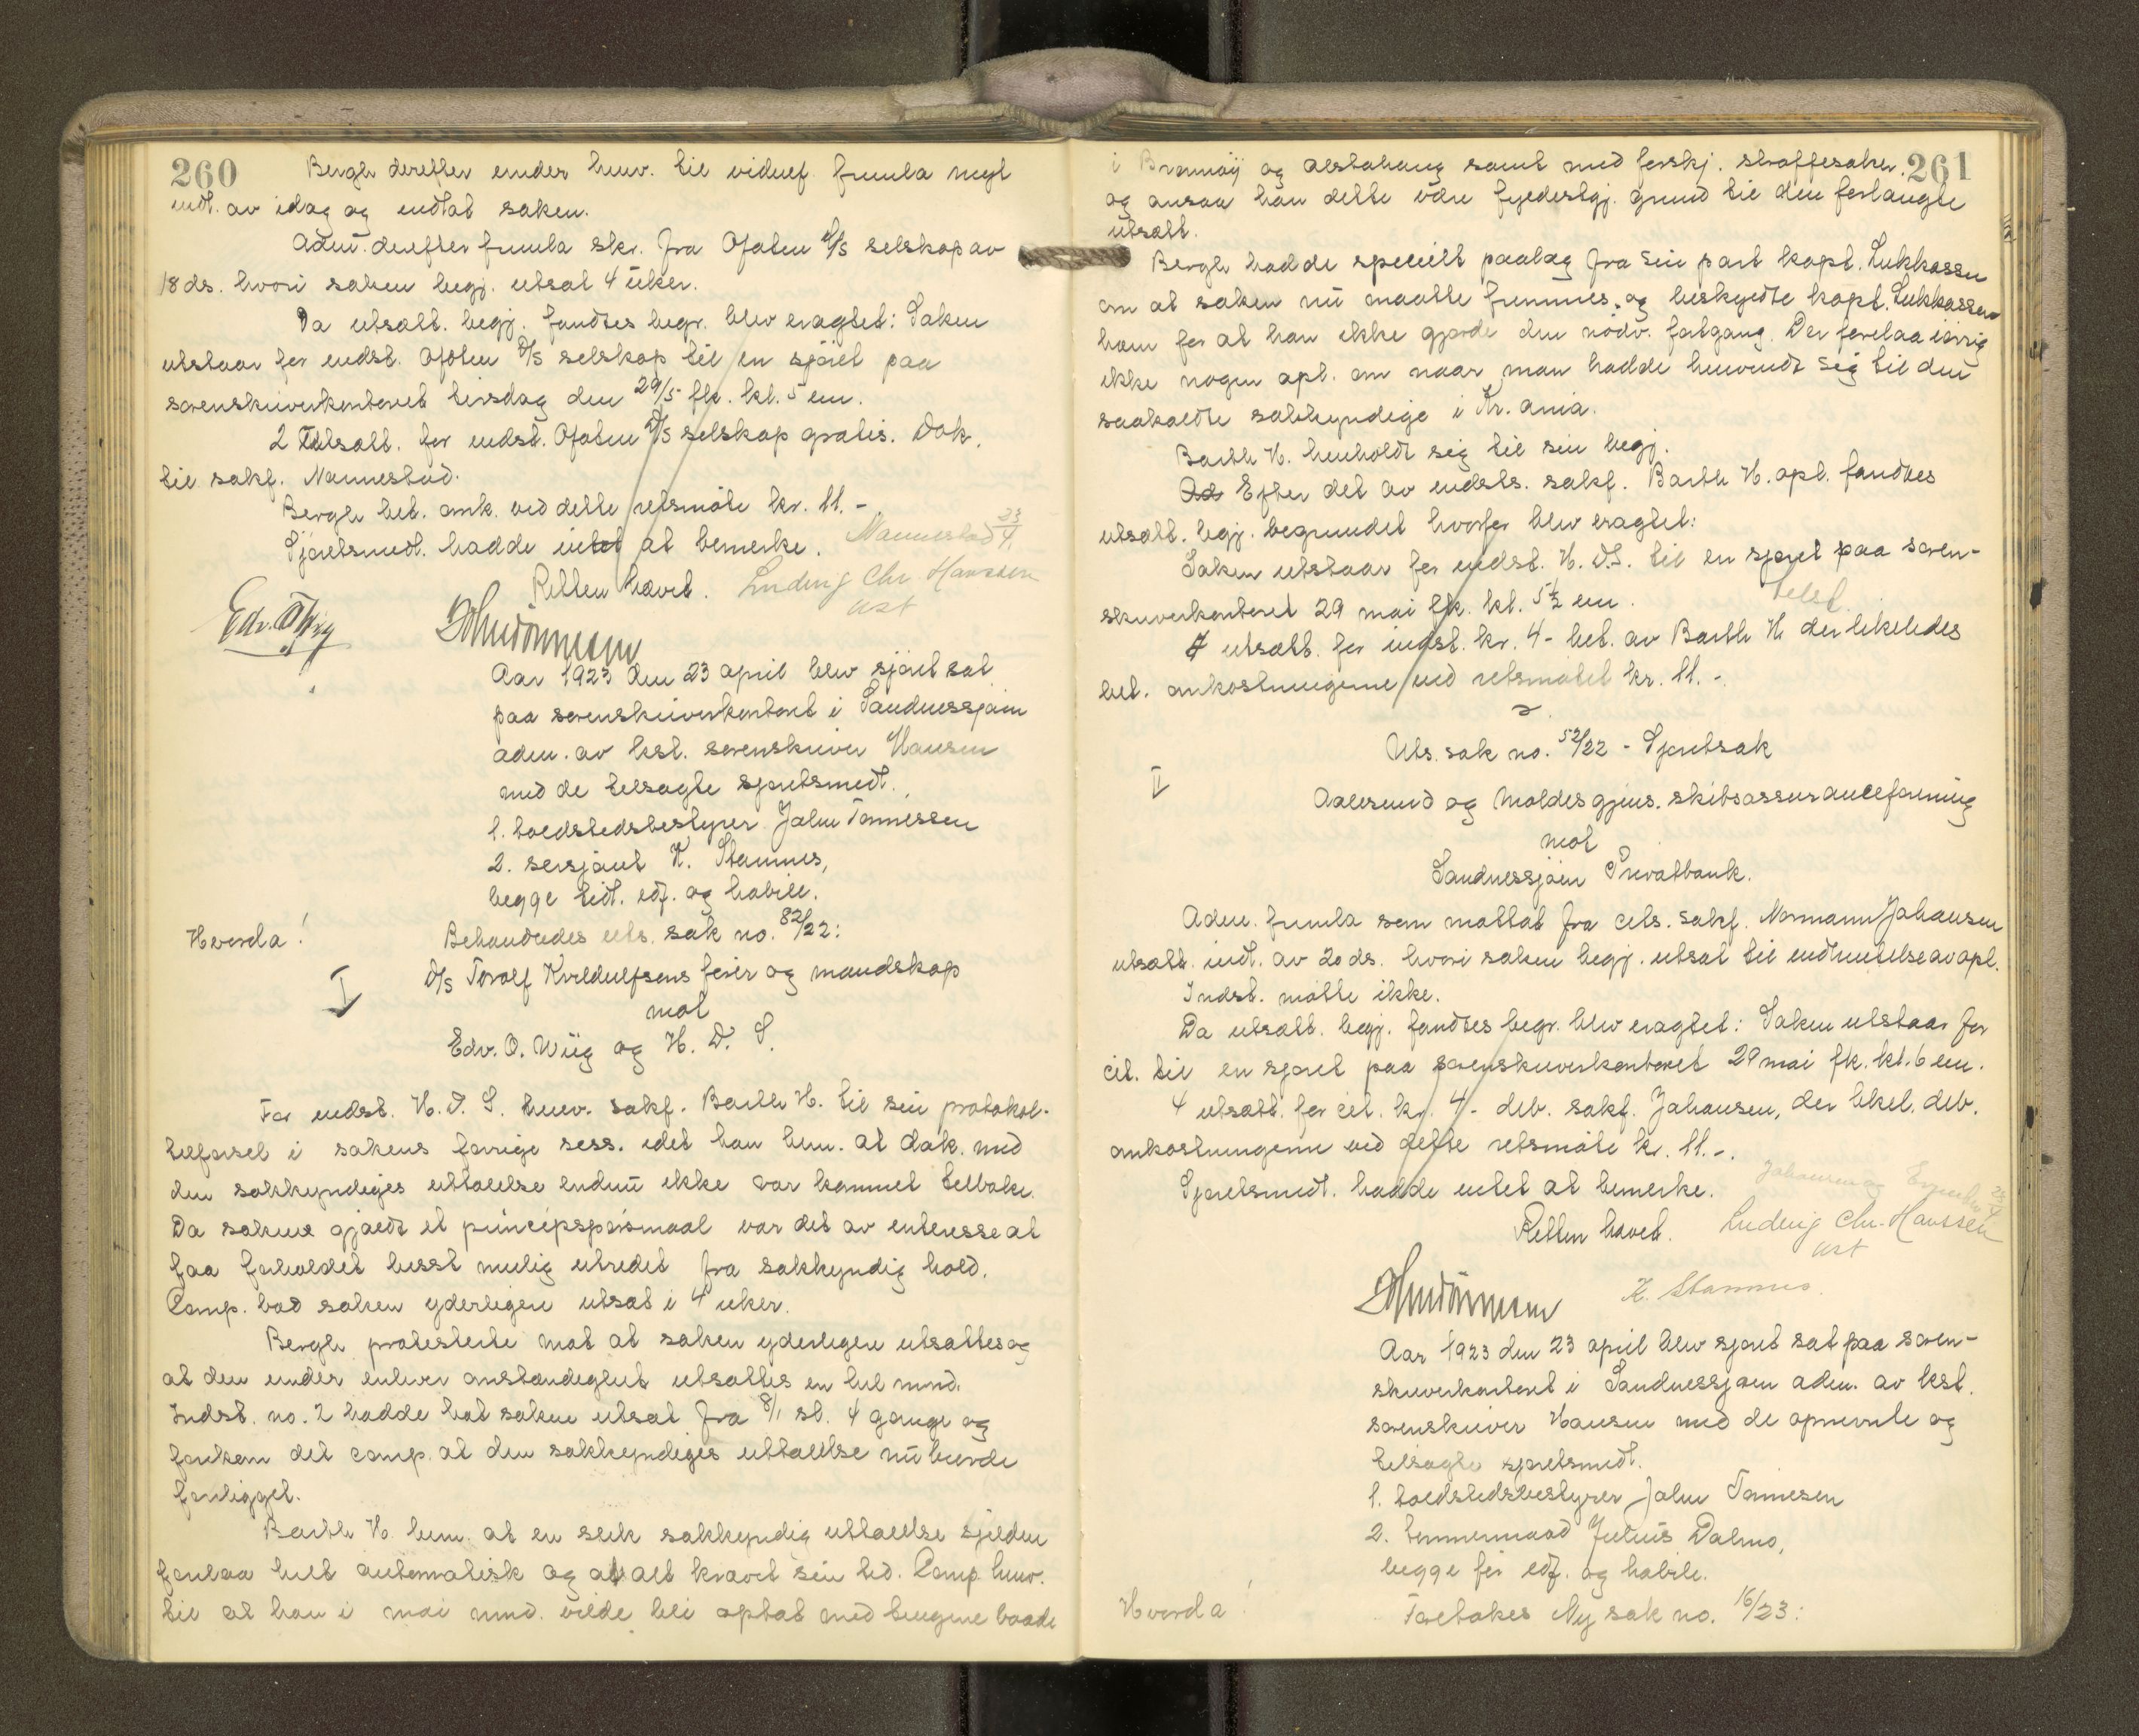 260
Bergh derefter under henv. til vidnef. fremla nyt
indl. av idag og indlot saken.
Adm. derefter fremla skr. fra Ofoten D/S selskap av
18 ds. hvori saken begj. utsat 4 uker.
Da utsætt. begj. fandtes begr. blev eragtet: Saken
utstaar for indst. Ofoten D/S selskap til en sjöret paa
sorenskriverkontoret tirsdag den 29/5 fk. kl. 5 em.
2 Utsætt. for indst. Ofoten D/S selskap gratis. Dok.
til sakf. Mannestad.
Bergh bet. omk. ved dette retsmöte kr. 11.-
Sjöretsmedl. hadde intet at bemerke. Mannestad 23/4
Retten hævet. Ludvig Chr. Hanssen
ust
Aar 1923 den 23 april blev sjöret sat
paa sorenskriverkontoret i Sandnessjöen
adm. av kst. sorenskriver Hansen
med de tilsagte sjöretsmedl.
1. toldstedsbestyrer John Tönnessen
2. sersjant K. Stamnes,
begge tidl. edf. og habile.
Hvorda!
Behandledes uts. sak no. 82/22:
I
D/S Torolf Kveldulfsöns förer og mandskap
mot
Edv. O. Wiig og H. D. S.
For indst. H. D. S. henv. sakf. Barth H. til sin protokol-
tilförsel i sakens forrige sess. idet han bem. at dok. med
den sakkyndiges uttalelse endnu ikke var kommet tilbake.
Da saken gjældt et principspörsmaal var det av interesse at
faa forholdet besst mulig utredet fra sakkyndig hold.
Comp. bad saken yderligere utsat i 4 uker.
Bergh protesterte mot at saken yderligere utsattes og
at den under enhver omstændighet utsattes en hel mnd.
Indst. no. 2 hadde hat saken utsat fra 8/1 sl. 4 gange og
forekom det comp. at den sakkyndiges uttalelse nu burde
foreligget.
Barth H. bem. at en slik sakkyndig uttalelse sjelden
forelaa helt automatisk og at alt krævet sin tid. Comp. henv.
til at han i mai mnd. vilde bli optat med tingene baade
261
i Brönnöy og Alstahaug samt med forskj. straffesaker
og ansaa han dette være fyldestgj. grund til den forlangte
utsætt.
Bergh hadde specielt paalæg fra sin part kapt. Lukkassen
om at saken nu maatte fremmes og beskyldte kapt. Lukkassen
ham for at han ikke gjorde den nödv. fortgang. Der forelaa iövrig
ikke nogen opl. om naar man hadde henvendt sig til den
saakaldte sakkyndige i Kr.ania.
Barth H. henholdt sig til sin begj.
Efter det av indsts. sakf. Barth H. opl. fandtes
utsætt. begj. begrundet hvorfor blev eragtet:
Saken utstaar for indst. H. D. S. til en sjöret paa soren-
skriverkontoret 29 mai fk. kl. 5½ em.
4 utsætt. for indst. kr. 4- bet. av Barth H. der likeledes
bet. omkostningerne ved retsmötet kr. 11.-
Uts. sak no. 52/22 - Sjöretssak
II
Aalesund og Moldes gjens. skibsassuranceforening
mot
Sandnessjöen Privatbank.
Adm. fremla som mottat fra cits. sakf. Normann Johansen
utsætt. indl. av 20 ds. hvori saken begj. utsat til indhentelse av opl.
Indst. mötte ikke.
Da utsætt. begj. fandtes begr. blev eragtet: Saken utstaar for
cit. til en sjöret paa sorenskriverkontoret 29 mai fk. kl. 6 em.
4 utsætt. for cit. kr. 4- deb. sakf. Johansen, der likel. deb.
omkostningerne ved dette retsmöte kr. 11.-.
Sjöretsmedl. hadde intet at bemerke.
Retten hævet. Ludvig Chr. Hanssen
ust
K. Stamnes.
Aar 1923 den 23 april blev sjöret sat paa soren-
skriverkontoret i Sandnessjöen adm. av kst.
sorenskriver Hansen med de opnævnte og
tilsagte sjöretsmedl.
1. toldstedsbestyrer John Tönnesen
2. tömmermand Julius Dalmo,
begge för edf. og habile.
Hvorda!
Foretokes Ny sak no. 16/23: